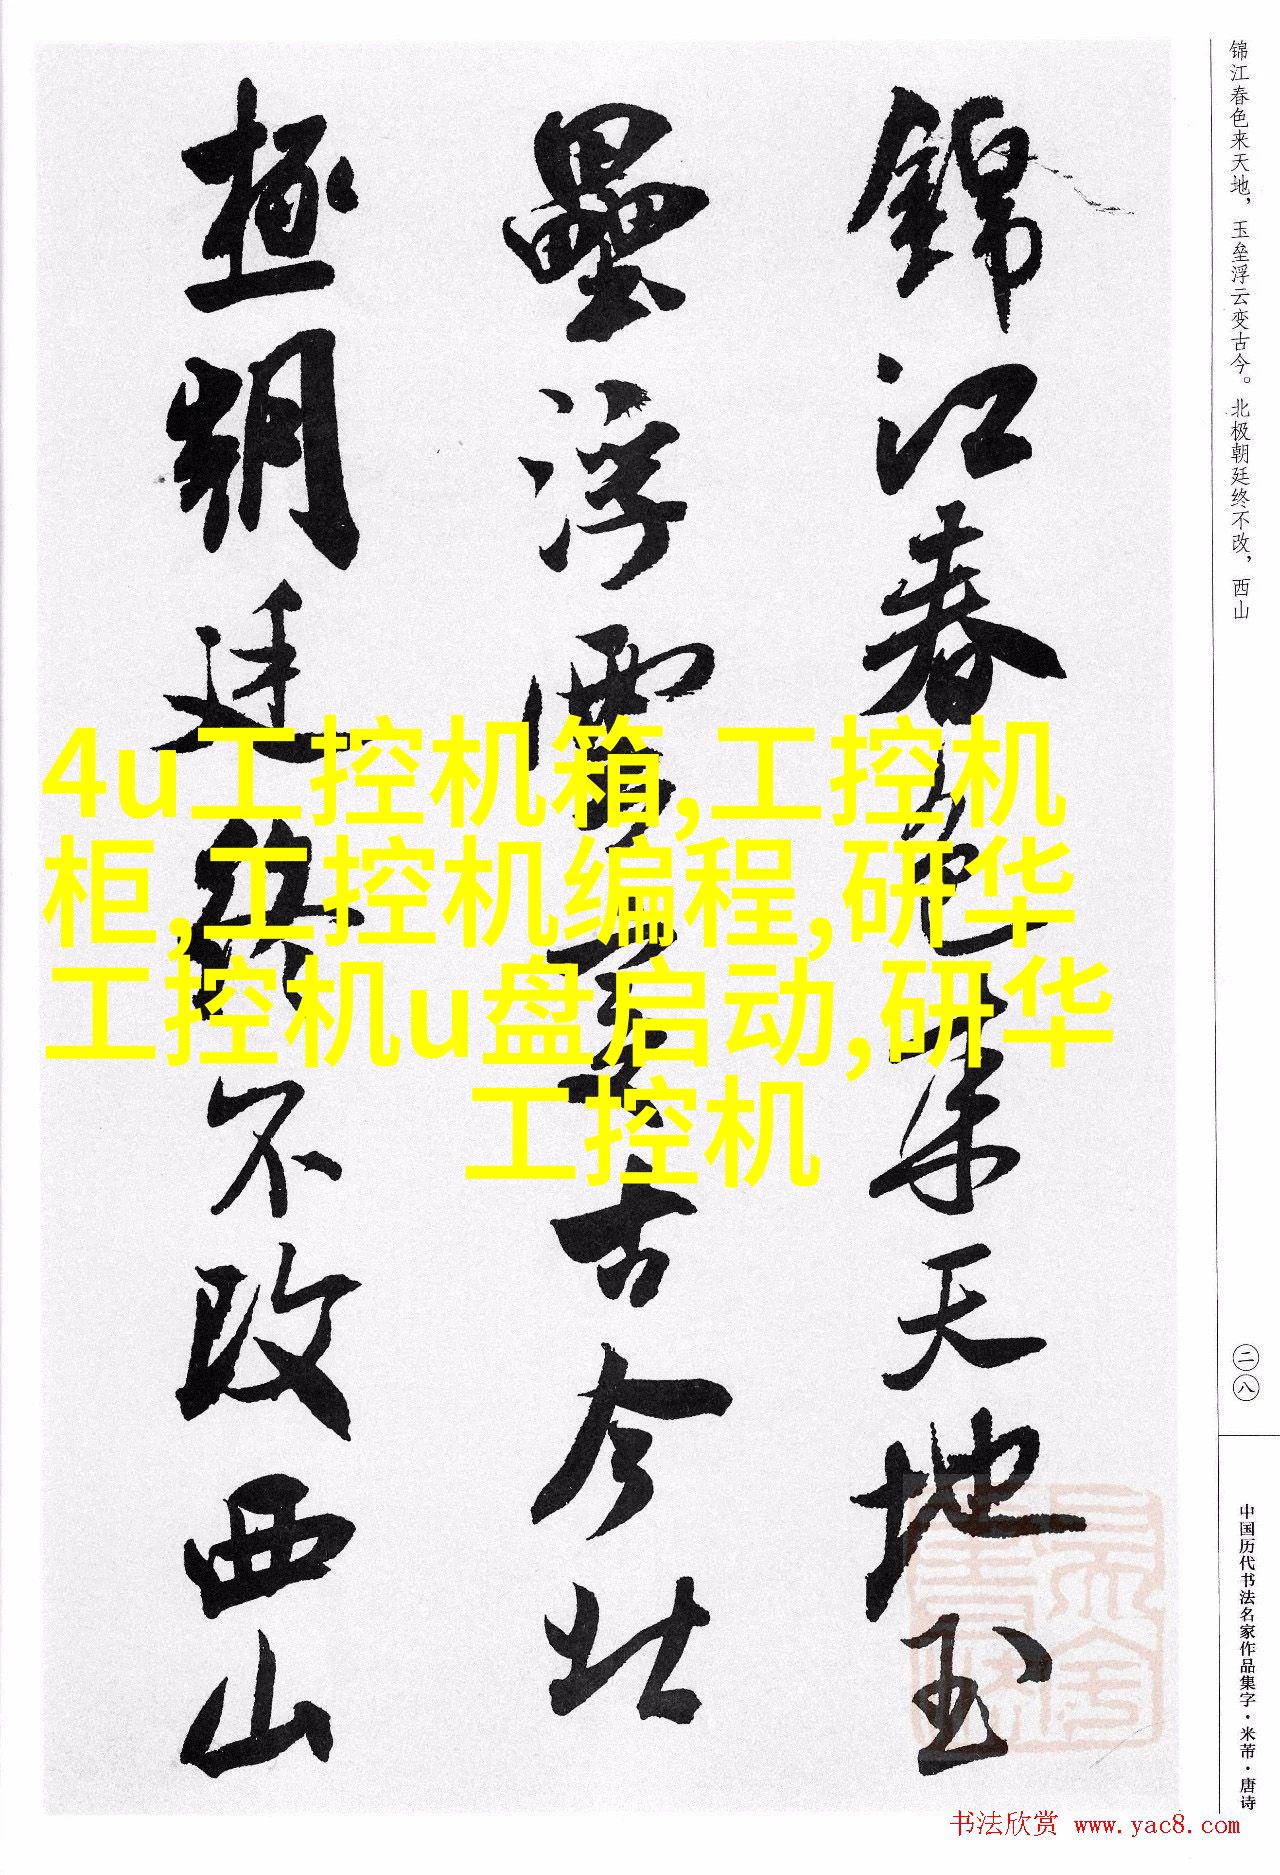 錦江春色来天地玉
壘浮雲变古今北
極朝廷終不改西山
锦江春色来天地，玉垒浮云变古今。北极朝廷终不改，西山
4u工控机箱,工控机
柜,工控机编程,研华
工控机u盘启动,研华
工控机
二八
中国历代书法名家作品集字·米芾·唐诗
书法欣赏 www.yac8.com